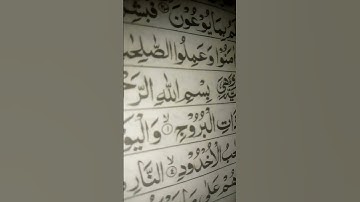 بِمَا يُوْعُوْنَ ۝ فَبَشِّ
اٰمَنُوْا وَعَمِلُوا الصّٰلِحٰ
بِسْمِ اللّٰهِ الرَّحْ
ذَاتِ الْبُرُوْجِ ۝١ وَالْيَوْ
حٰبُ الْاُخْدُوْدِ ۝٤ النَّارِ
هُمْ عَلٰى